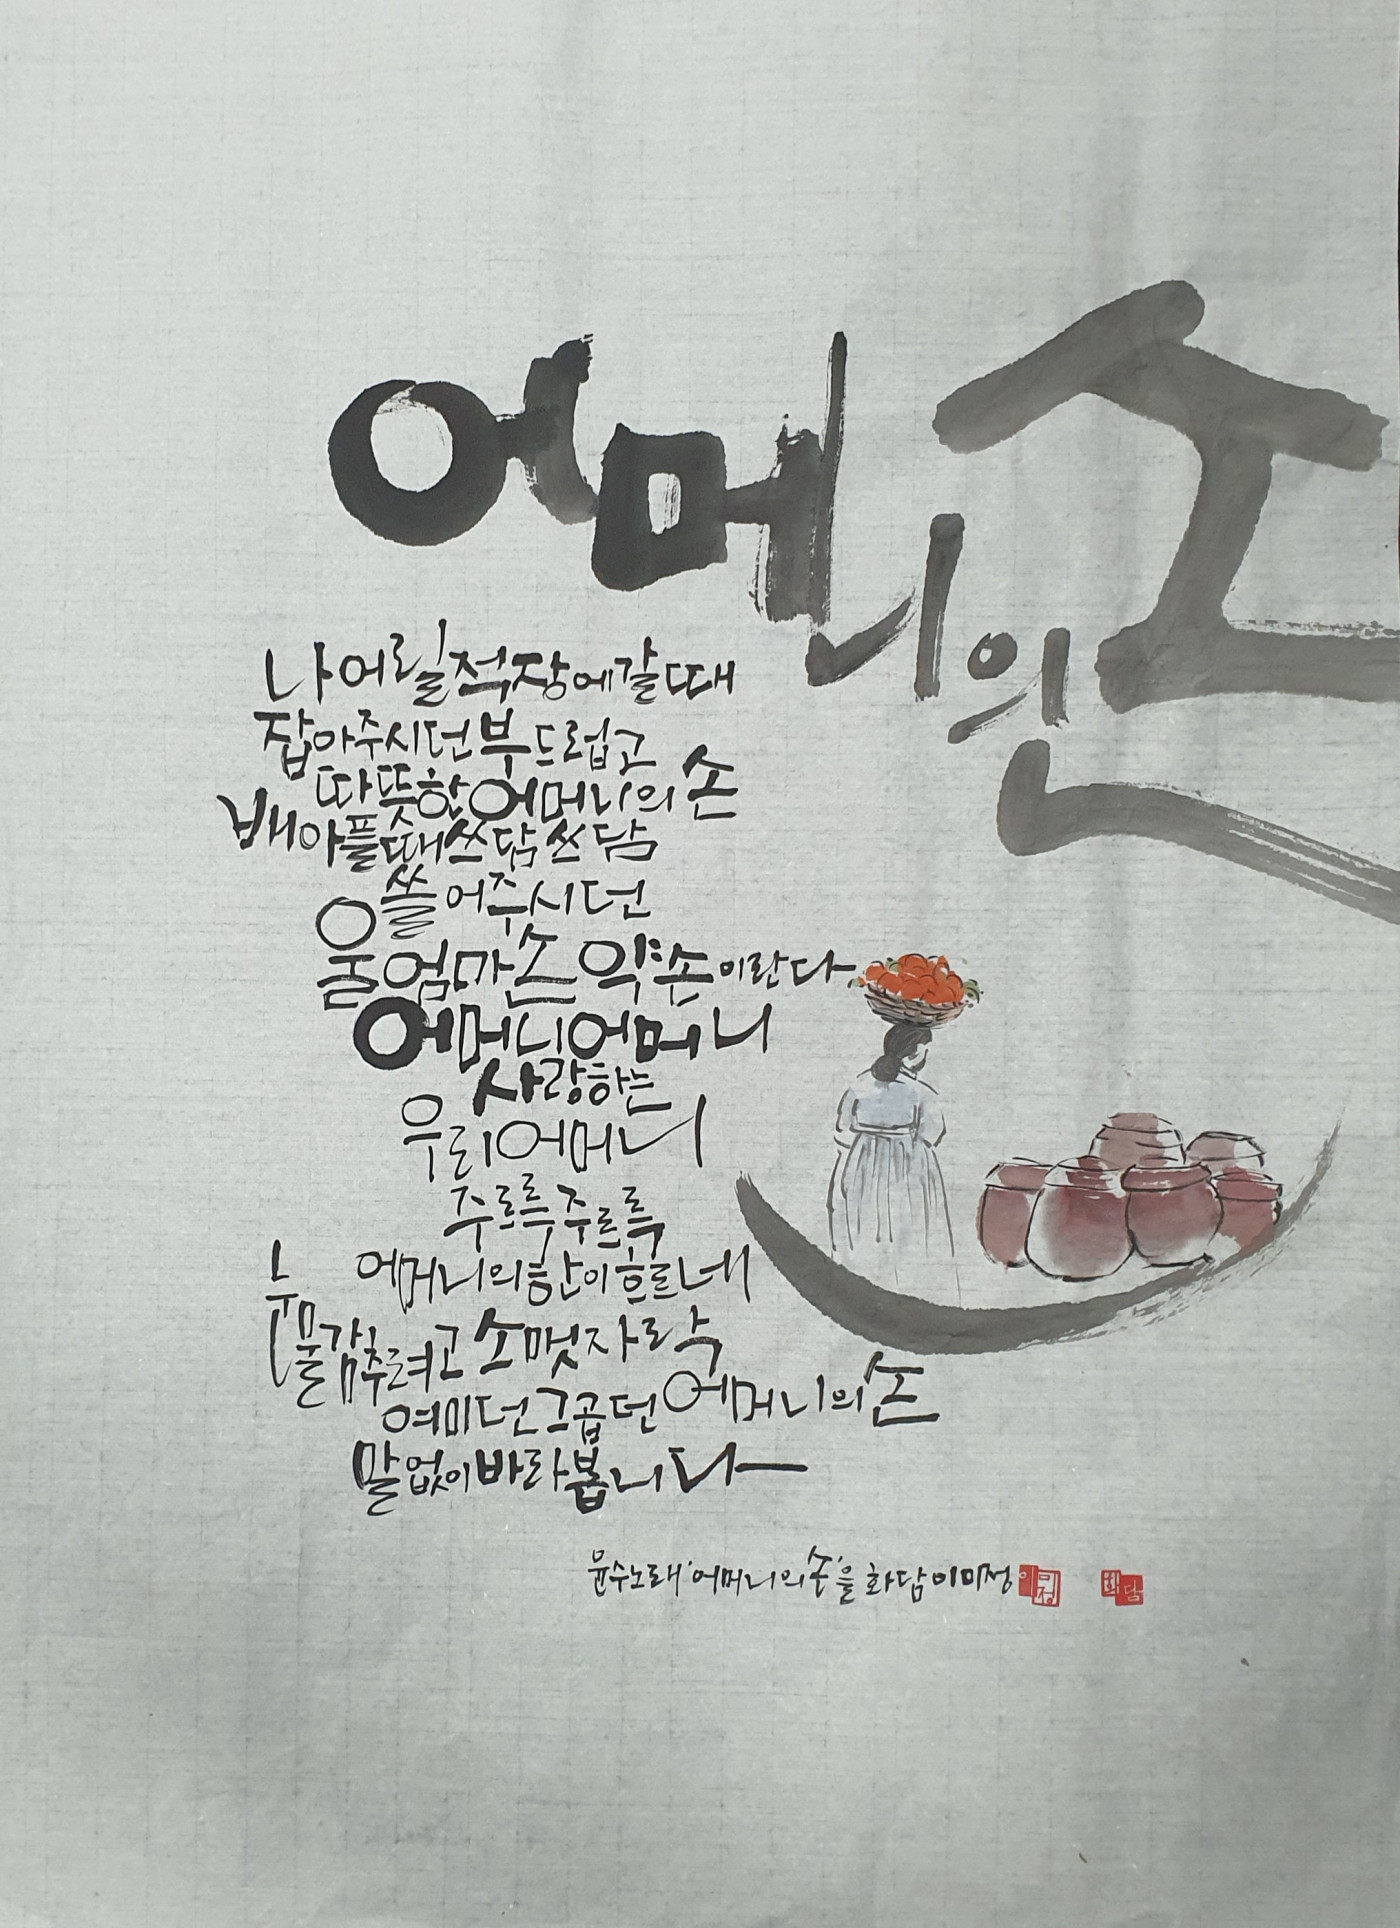 어머니의 손
나 어릴적 장에 갈 때
잡아주시던 부드럽고
따뜻한 어머니의 손
배 아플 때 쓰담쓰담
쓸어주시던
울엄마 손 약손이란다
어머니 어머니
사랑하는
우리 어머니
주르륵 주르륵
어머니의 한이 흐르네
눈물 감추려고 소맷자락
여미던 그 곱던 어머니의 손
말없이 바라봅니다
윤수노래 '어머니의 손'을 화담 이미정
이미정
화담